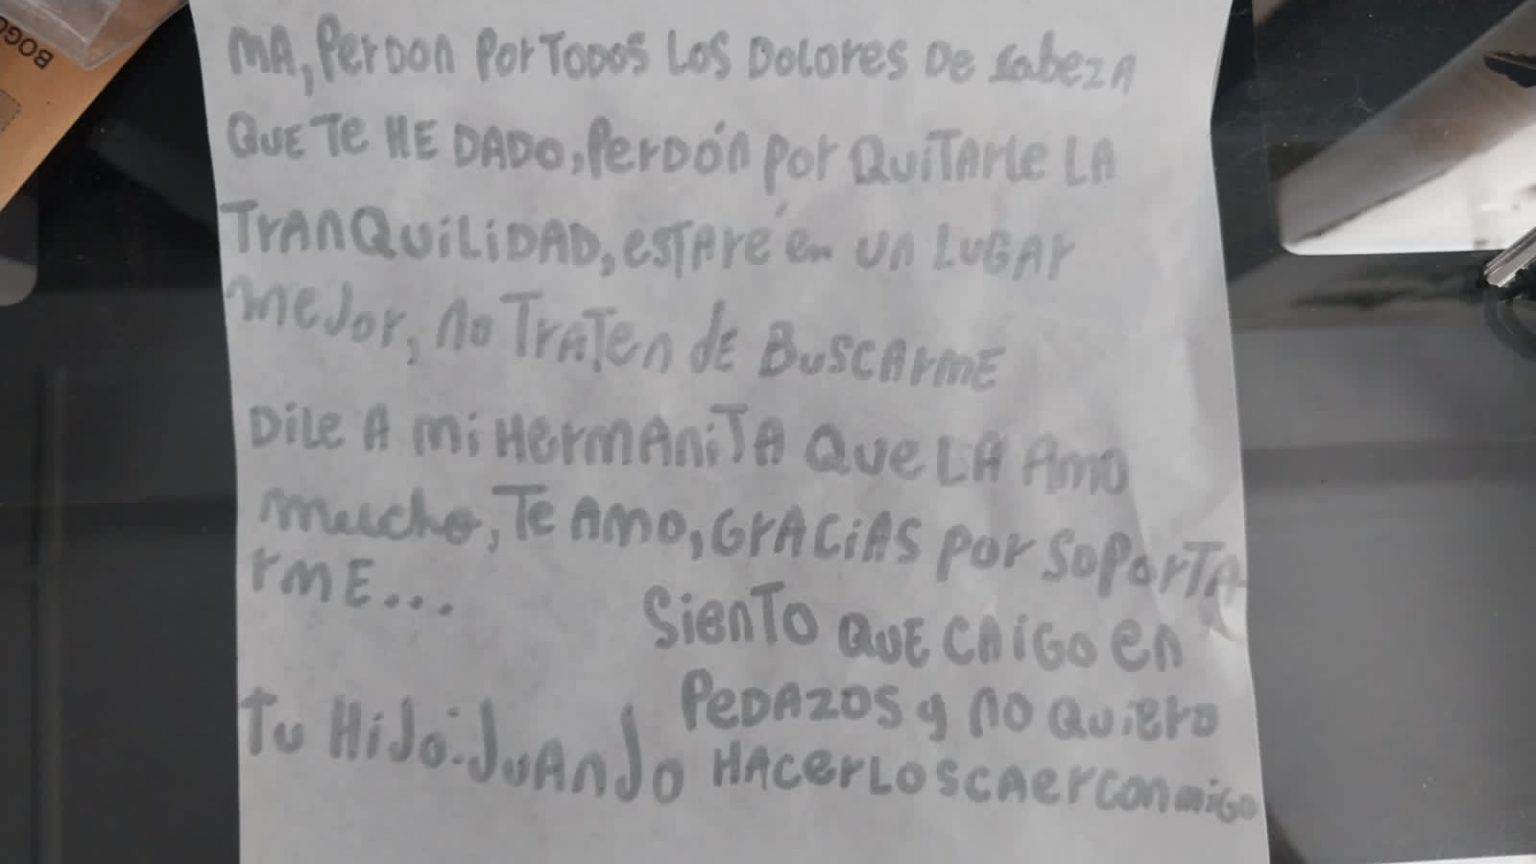 BOGO
MA, PerDON POrTODOS LOS DOLOreS De cabeZA
QUE Te HE DADO, PerDón por QUiTArle LA
TrAnQUiLiDAD, esTAré en un LUGAr
meJor, no TrATen dE BuSCArmE
DiLe A mi HermAniTA QUe LA Amo
mucho, Te Amo, GrACiAS por SoPorTA-
rmE...
SienTO QUE CAiGo en
PeDAZOS y no QUiero
HAcerLos cAer conmiGo
Tu HiJo: JuAnJo